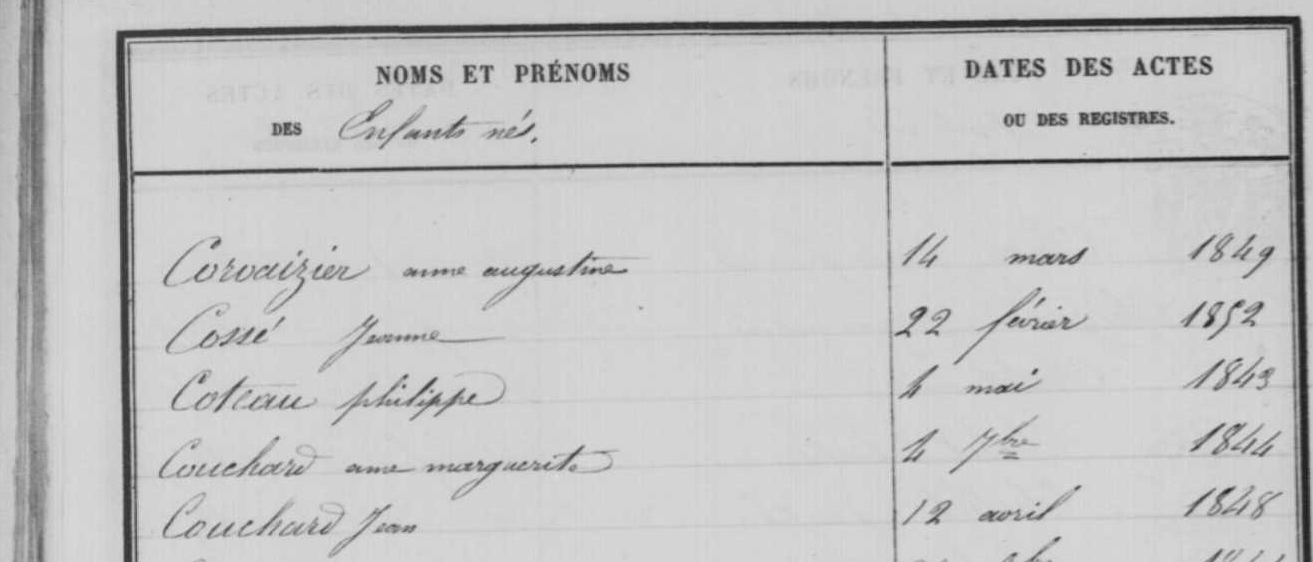 NOMS ET PRÉNOMS
DES Enfants nés.
DATES DES ACTES
OU DES REGISTRES.
Corvaizier anne augustine 14 mars 1849
Cossé Jeanne 22 février 1852
Coteau philippe 4 mai 1843
Couchard anne marguerite 4 7bre 1844
Couchard Jean 12 avril 1848